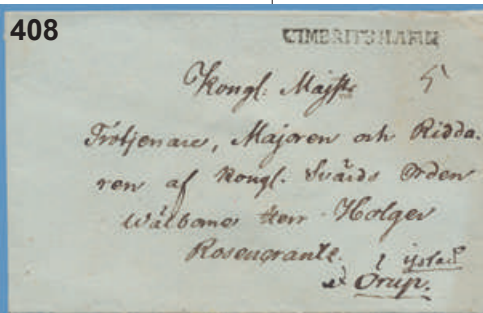 408
CIMBRITSHAMN
Kongl: Majtts 5
Trotjenare, Majoren och Ridda.
ren af Kongl. Svärds Orden
Wälborne Herr Holger
Rosencrantz.
ijstad
Örup.